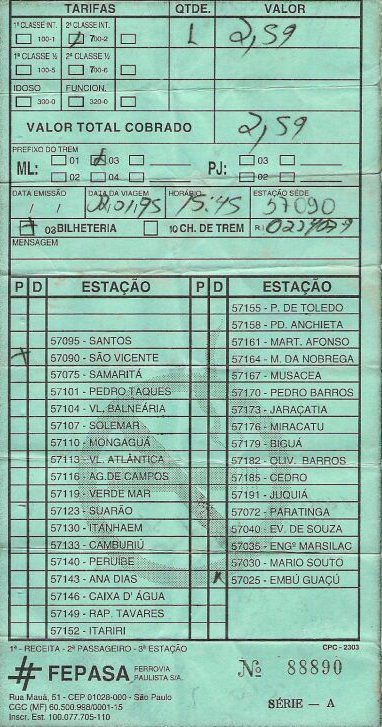 TARIFAS QTDE. VALOR
1ª CLASSE INT. 2ª CLASSE INT.
100-1 700-2 1 2,59
1ª CLASSE ½ 2ª CLASSE ½
100-5 700-6
IDOSO FUNCION.
300-0 320-0
VALOR TOTAL COBRADO 2,59
PREFIXO DO TREM
ML: 01 03 PJ: 03
02 04 02
DATA EMISSÃO DATA DA VIAGEM HORÁRIO ESTAÇÃO SEDE
/ / 01/95 15:45 57090
03 BILHETERIA 10 CH. DE TREM R.I.
MENSAGEM
P D ESTAÇÃO P D ESTAÇÃO
57155 - P. DE TOLEDO
57158 - PD. ANCHIETA
57095 - SANTOS 57161 - MART. AFONSO
57090 - SÃO VICENTE 57164 - M. DA NOBREGA
57075 - SAMARITÁ 57167 - MUSACEA
57101 - PEDRO TAQUES 57170 - PEDRO BARROS
57104 - VL. BALNEÁRIA 57173 - JARAÇATIA
57107 - SOLEMAR 57176 - MIRACATU
57110 - MONGAGUÁ 57179 - BIGUÁ
57113 - VL. ATLÂNTICA 57182 - OLIV. BARROS
57116 - AG. DE CAMPOS 57185 - CEDRO
57119 - VERDE MAR 57191 - JUQUIÁ
57123 - SUARÃO 57072 - PARATINGA
57130 - ITANHAEM 57040 - EV. DE SOUZA
57133 - CAMBURIÚ 57035 - ENGº MARSILAC
57140 - PERUIBE 57030 - MARIO SOUTO
57143 - ANA DIAS 57025 - EMBÚ GUAÇÚ
57146 - CAIXA D' ÁGUA
57149 - RAP. TAVARES
57152 - ITARIRI
1ª - RECEITA - 2ª PASSAGEIRO - 3ª ESTAÇÃO CPC - 2303
FEPASA FERROVIA PAULISTA S/A. Nº 88890
Rua Mauá, 51 - CEP 01028-000 - São Paulo
CGC (MF) 60.500.998/0001-15 SÉRIE - A
Inscr. Est. 100.077.705-110